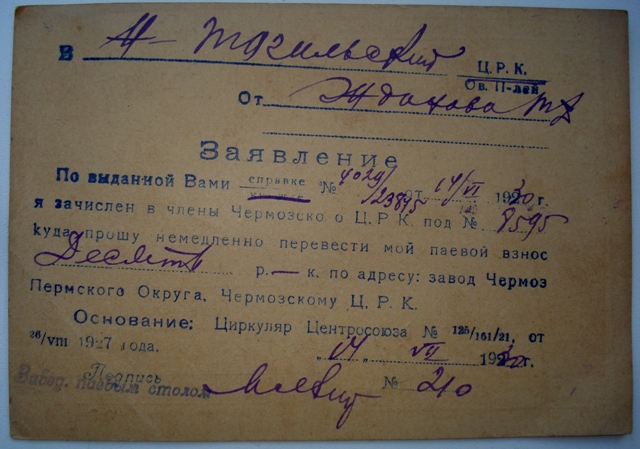 В Н-Тагильский Ц. Р. К.
Ов. П-лей
От
Заявление
По выданной Вами справке № 4029/23845 от 14/VI 1930 г.
я зачислен в члены Чермозско о Ц. Р. К. под № 8595
куда прошу немедленно перевести мой паевой взнос
Десять р. — к. по адресу: завод Чермоз
Пермского Округа, Чермозскому Ц. Р. К.
Основание: Циркуляр Центросоюза № 125/161/21, от
26/VIII 1927 года. „14„ VII 1930 г.
Подпись
Завед. паевым столом № 210